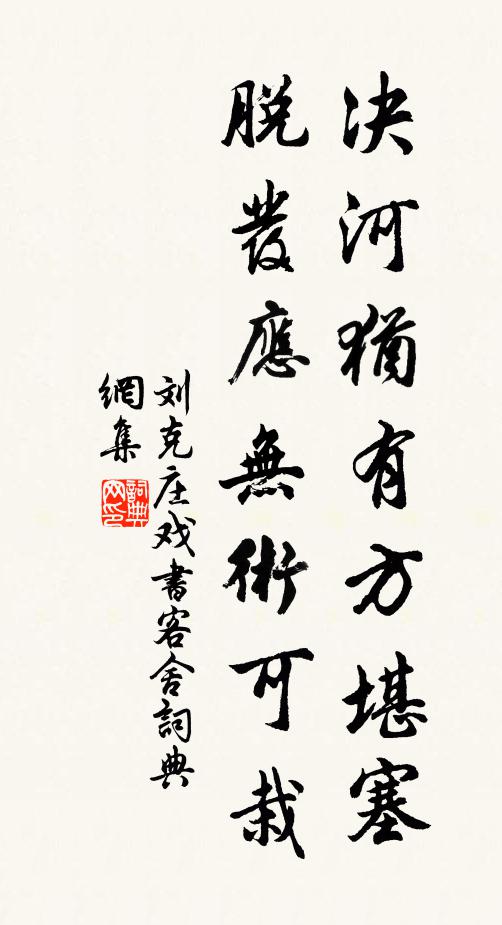 决河猶有方堪塞
脱發應無術可栽
刘克庄戏書客舍詞典
網集
詞典網印